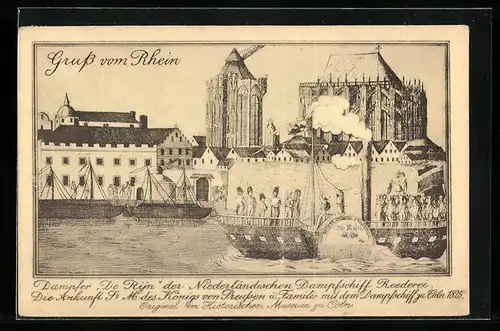 Gruß vom Rhein
Dampfer "De Rijn" der Niederländischen Dampfschiff Reederei
Die Ankunft Sr. M. des Königs von Preußen u. Familie mit dem Dampfschiff zu Cöln 1825.
Original im Historischen Museum zu Cöln.